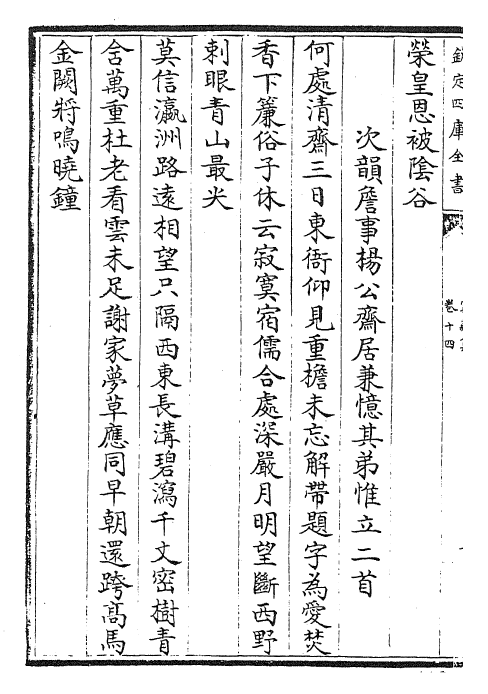 欽定四庫全書
卷十四
榮皇恩被陰谷
次韻詹事楊公齋居兼憶其弟惟立二首
何處清齋三日東衙仰見重檐未忘解帶題字為愛焚
香下簾俗子休云寂寞宿儒合處深嚴月明望斷西野
刺眼青山最尖
莫信瀛洲路遠相望只隔西東長溝碧瀉千丈密樹青
含萬重杜老看雲未足謝家夢草應同早朝還跨髙馬
金闕將鳴曉鐘